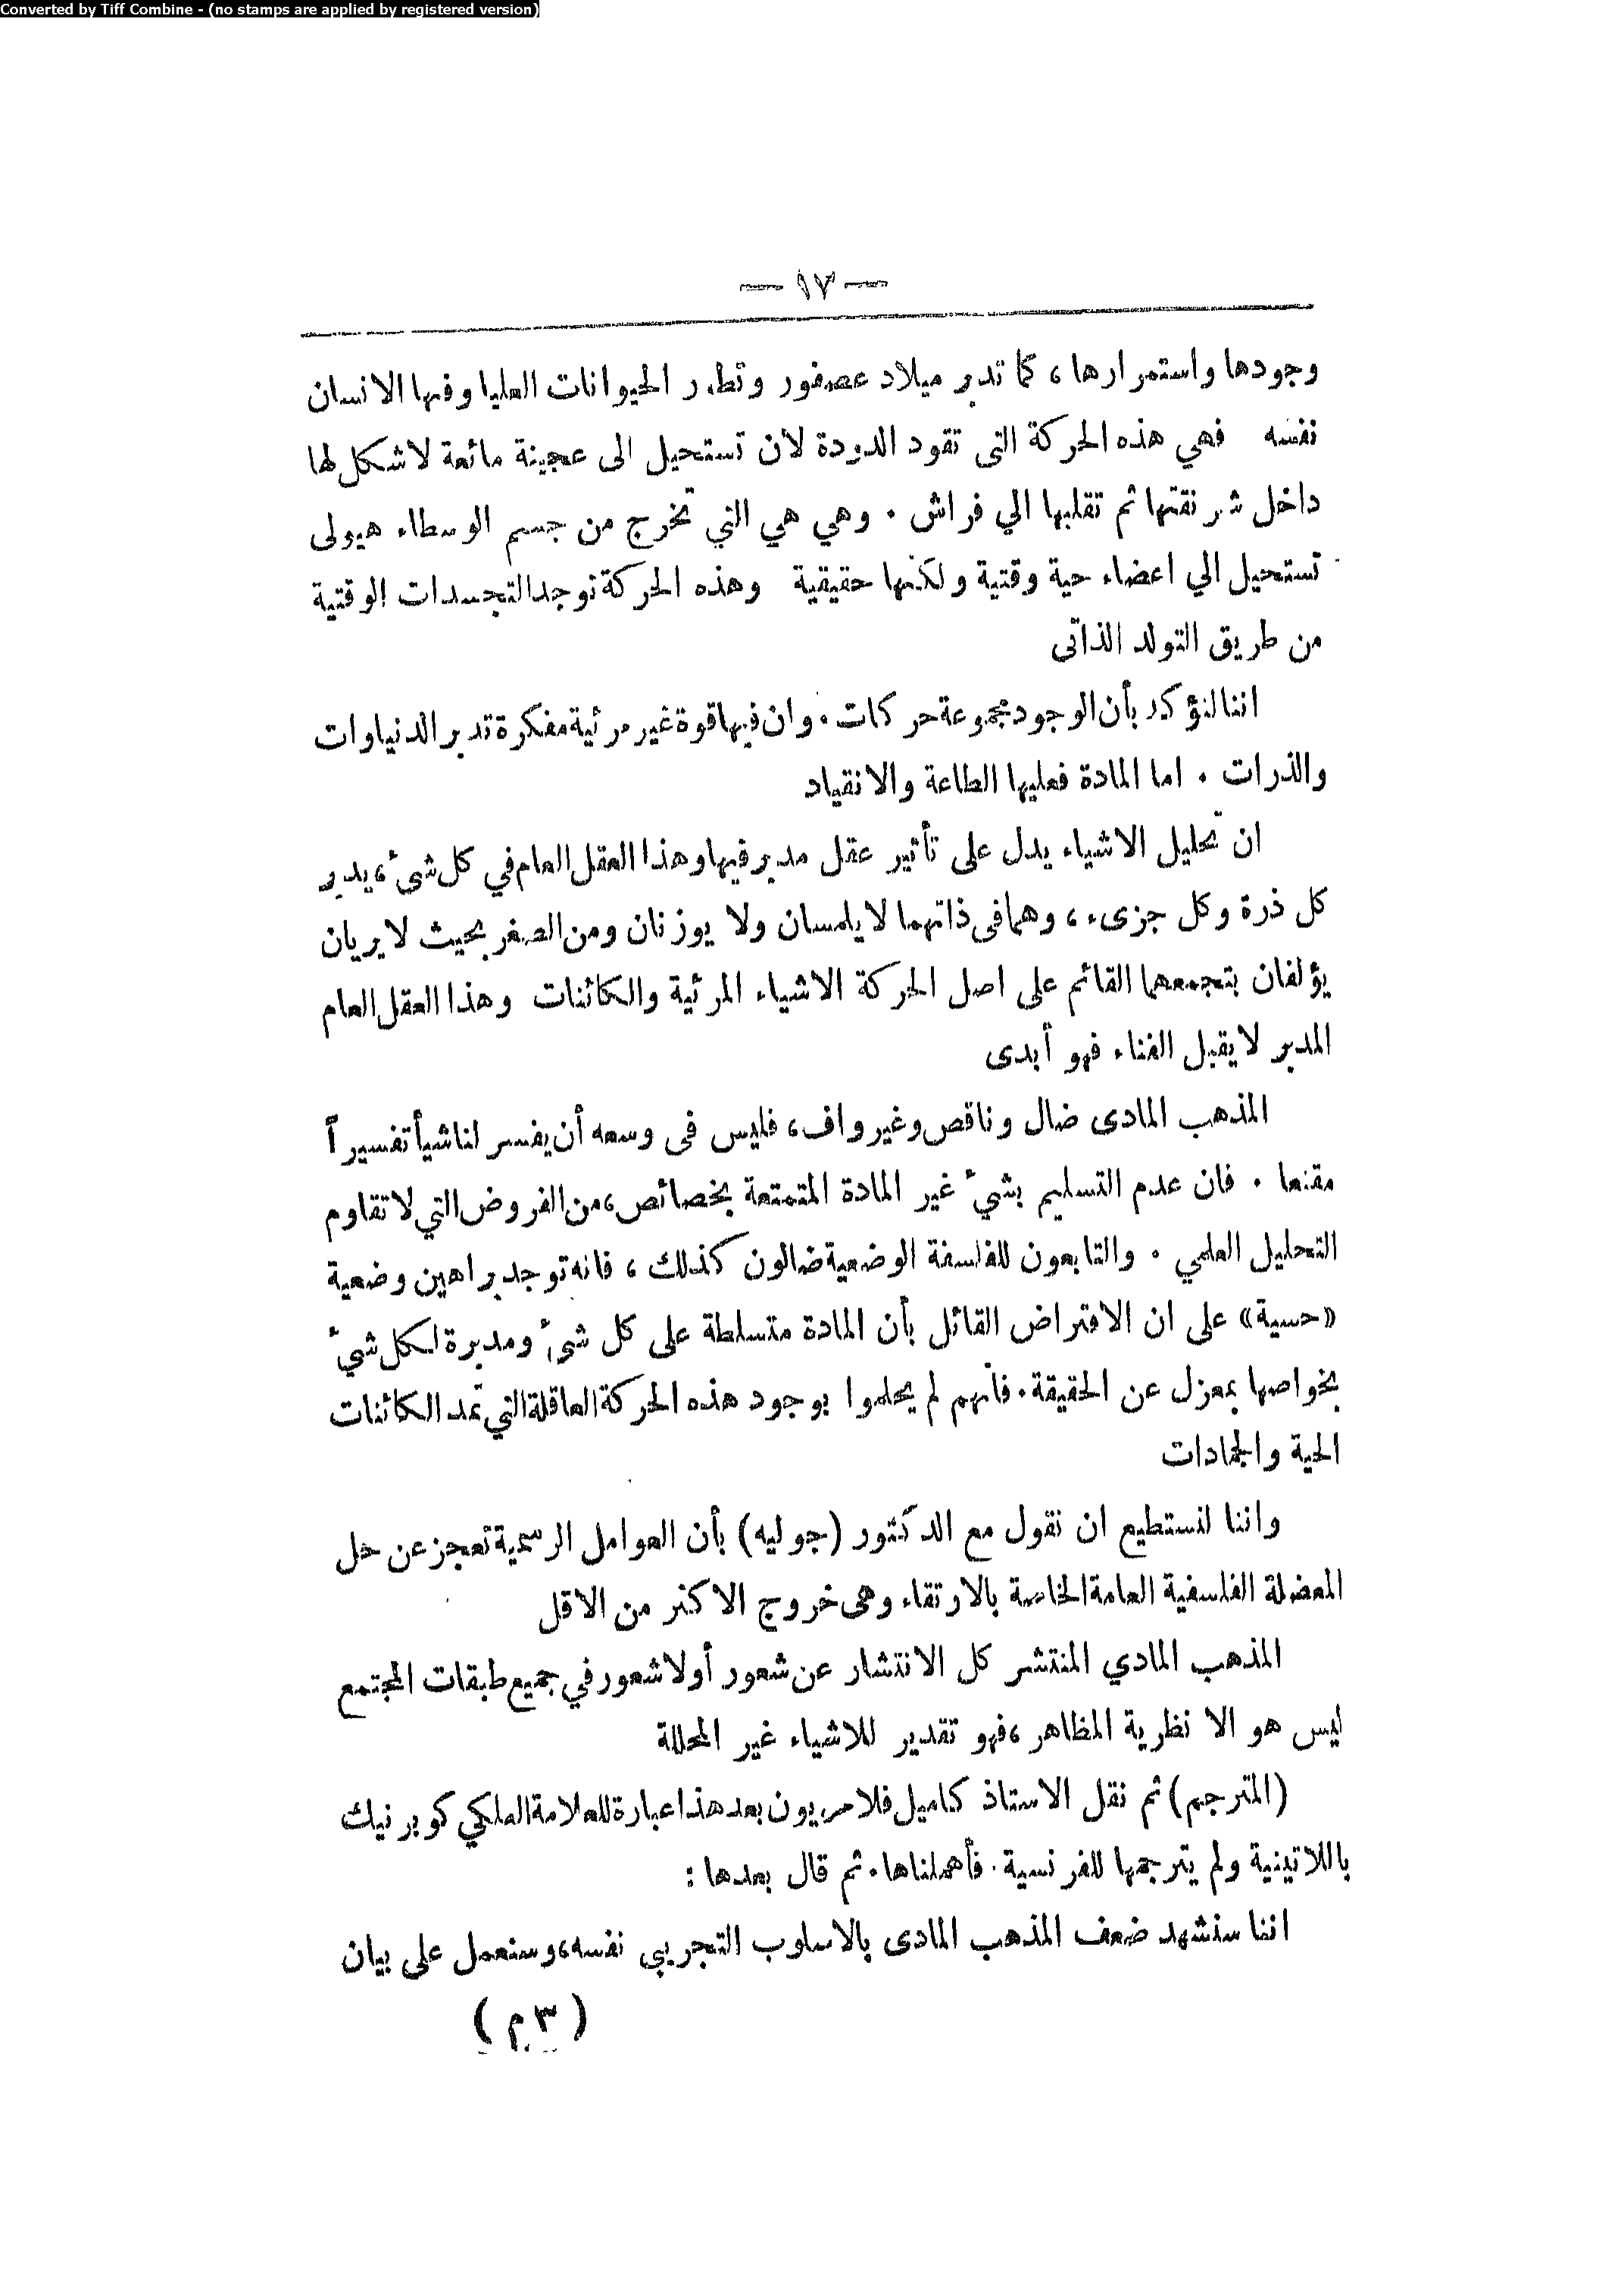 Converted by Tiff Combine - (no stamps are applied by registered version)
— ١٧ —
وجودها واستمرارها ، كما تدبر ميلاد عصفور وتطور الحيوانات العليا وفيها الانسان
نفسه فهي هذه الحركة التى تقود الدودة لان تستحيل الى عجينة مائعة لاشكل لها
داخل شرنقتها ثم تقلبها الي فراش . وهي هي التي تخرج من جسم الوسطاء هيولى
تستحيل الي اعضاء حية وقتية ولكنها حقيقية وهذه الحركة توجد التجسدات الوقتية
من طريق التولد الذاتى
اننا لنؤكد بأن الوجود مجموعة حركات . وان فيها قوة غير مرئية مفكرة تدبر الدنياوات
والذرات . اما المادة فعليها الطاعة والانقياد
ان تحليل الاشياء يدل على تأثير عقل مدبر فيها وهذا العقل العام في كل شىء ، يدبر
كل ذرة وكل جزىء ، وهما فى ذاتهما لا يلمسان ولا يوزنان ومن الصغر بحيث لا يريان
يؤلفان بتجمعهما القائم على اصل الحركة الاشياء المرئية والكائنات وهذا العقل العام
المدبر لا يقبل الفناء فهو أبدى
المذهب المادى ضال وناقص وغير واف ، فليس فى وسعه أن يفسر لنا شيأ تفسيراً
مقنعا . فان عدم التسليم بشيء غير المادة المتمتعة بخصائص ، من الفروض التي لا تقاوم
التحليل العلمي . والتابعون للفلسفة الوضعية ضالون كذلك ، فانه توجد براهين وضعية
«حسية» على ان الافتراض القائل بأن المادة متسلطة على كل شىء ومدبرة لكل شيء
بخواصها بمعزل عن الحقيقة . فأنهم لم يحلموا بوجود هذه الحركة العاقلة التي تمد الكائنات
الحية والجمادات
واننا لنستطيع ان نقول مع الدكتور (جوليه) بأن العوامل الرسمية تعجز عن حل
المعضلة الفلسفية العامة الخاصة بالارتقاء وهى خروج الاكثر من الاقل
المذهب المادي المنتشر كل الانتشار عن شعور أولا شعور في جميع طبقات المجتمع
ليس هو الا نظرية المظاهر ، فهو تقدير للاشياء غير المحللة
(المترجم) ثم نقل الاستاذ كاميل فلامريون بعد هذا عبارة للعلامة الفلكي كوبرنيك
باللاتينية ولم يترجمها للفرنسية . فأهملناها . ثم قال بعدها :
اننا سنشهد ضعف المذهب المادى بالاسلوب التجريبي نفسه ، وسنعمل على بيان
( ٣ م )